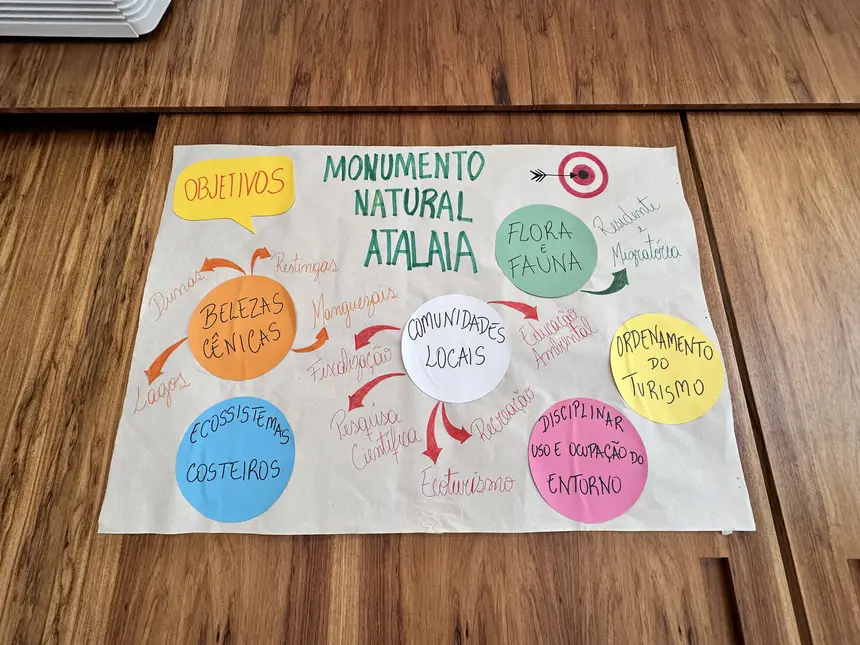 OBJETIVOS
MONUMENTO
NATURAL
ATALAIA
FLORA
E
FAÚNA
Residente
e
Migratória
Dunas
Restingas
BELEZAS
CÊNICAS
Manguezais
Lagos
COMUNIDADES
LOCAIS
Fiscalização
Educação
Ambiental
Pesquisa
Científica
Recreação
Ecoturismo
ORDENAMENTO
DO
TURISMO
ECOSSISTEMAS
COSTEIROS
DISCIPLINAR
USO E OCUPAÇÃO DO
ENTORNO